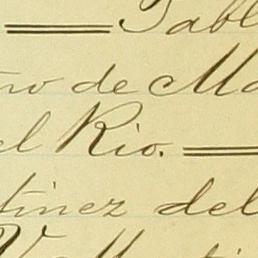 Pabl
no de Ma
el Rio.
tinez del